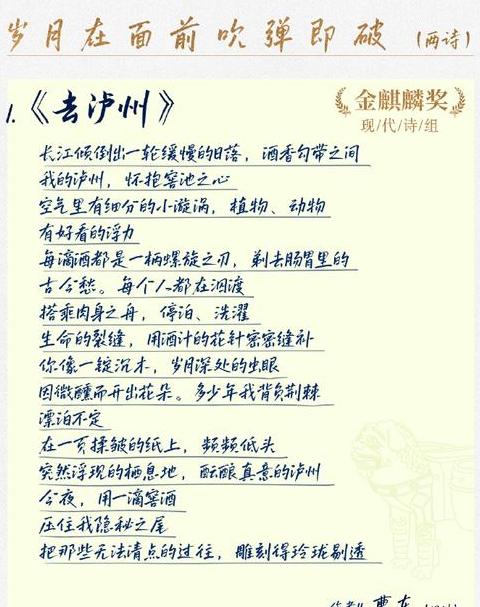 岁月在面前吹弹即破(两诗)
金麒麟奖
现/代/诗/组
1.《去泸州》
长江倾倒出一轮缓慢的日落,酒香勾带之间
我的泸州,怀抱窖池之心
空气里有细分的小漩涡,植物、动物
有好看的浮力
每滴酒都是一柄螺旋之刃,剃去肠胃里的
古今愁。每个人都在泅渡
搭乘肉身之舟,停泊、洗濯
生命的裂缝,用酒汁的花针密密缝补
你像一锭沉木,岁月深处的虫眼
因微醺而开出花朵。多少年我背负荆棘
漂泊不定
在一页揉皱的纸上,频频低头
突然浮现的栖息地,酝酿真意的泸州
今夜,用一滴窖酒
压住我隐秘之尾
把那些无法清点的过往,雕刻得玲珑剔透